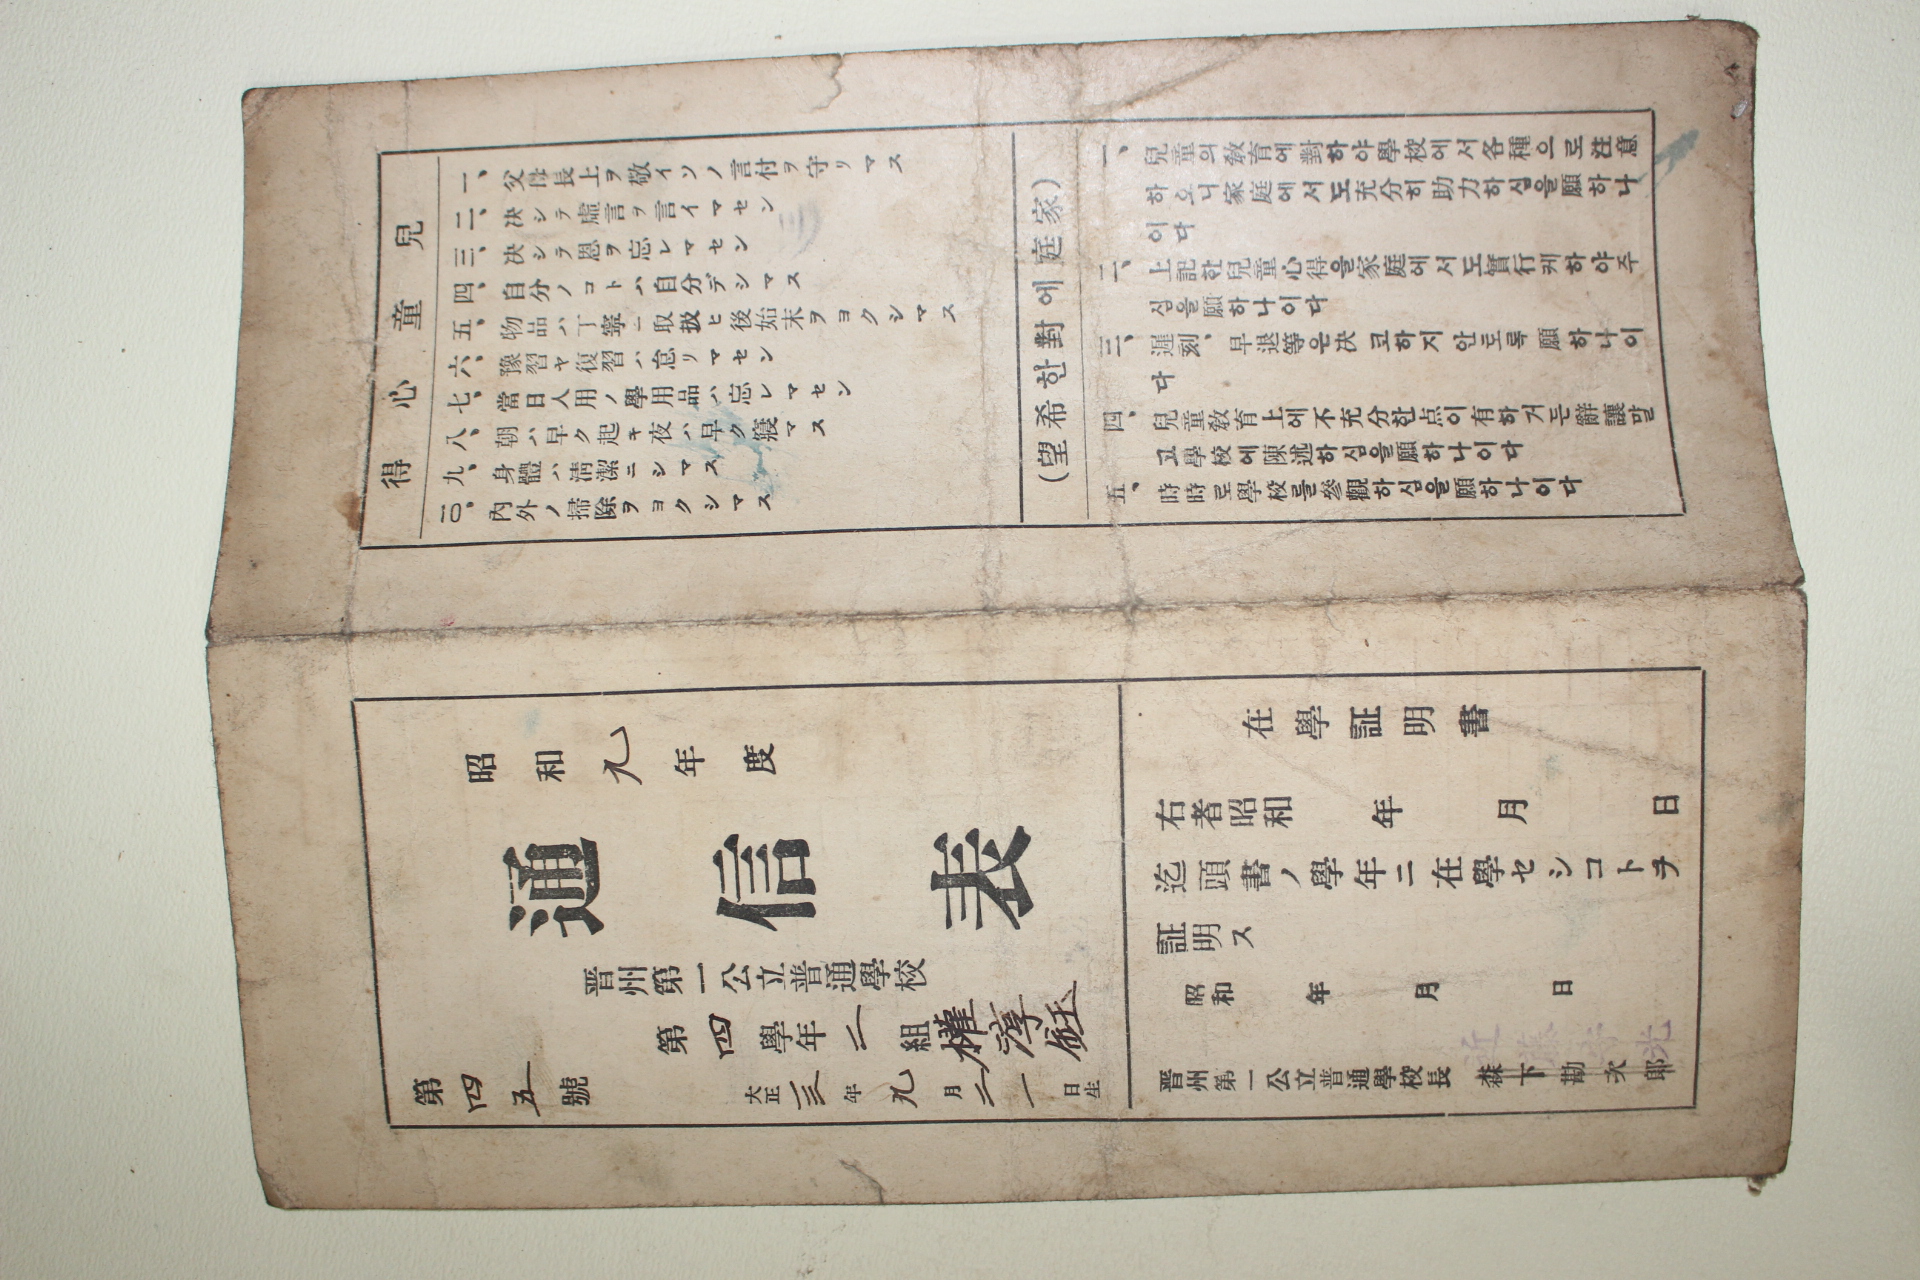 兒童心得
一、父母長上ヲ敬イソノ言付ヲ守リマス
二、決シテ虛言ヲ言イマセン
三、決シテ恩ヲ忘レマセン
四、自分ノコトハ自分デシマス
五、物品ハ丁寧ニ取扱ヒ後始末ヲヨクシマス
六、豫習ヤ復習ハ怠リマセン
七、當日入用ノ學用品ハ忘レマセン
八、朝ハ早ク起キ夜ハ早ク寢マス
九、身體ハ清潔ニシマス
一〇、內外ノ掃除ヲヨクシマス
(家庭에對한希望)
一、兒童의敎育에對하야學校에서各種으로注意
하오니家庭에서도充分히助力하심을願하나
이다
二、上記한兒童心得을家庭에서도實行케하야주
심을願하나이다
三、遲刻、早退等은决코하지안토록願하나이
다
四、兒童敎育上에不充分한点이有하거든辭讓말
고學校에陳述하심을願하나이다
五、時時로學校를參觀하심을願하나이다
昭和九年度
通信表
晋州第一公立普通學校
第四學年二組權淳鈺
大正一三年九月二一日生
第四五號
在學証明書
右者昭和 年 月 日
迄頭書ノ學年ニ在學セシコトヲ
証明ス
昭和 年 月 日
晋州第一公立普通學校長 森下勘次郎